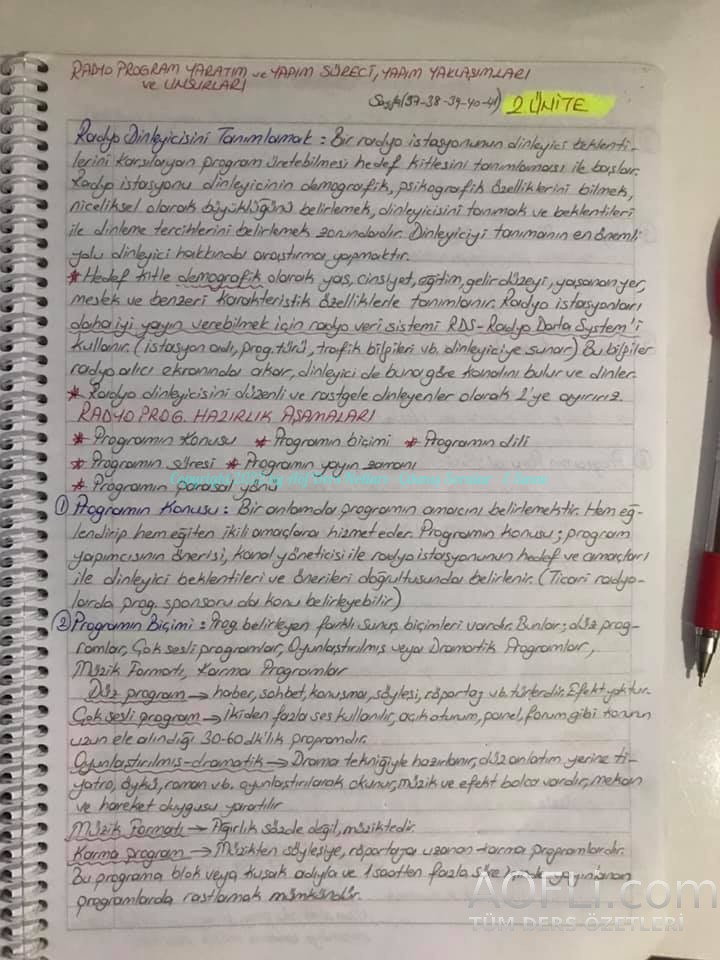 RADYO PROGRAM YARATIM ve YAPIM SÜRECİ, YAPIM YAKLAŞIMLARI
ve UNSURLARI
Sayfa(37-38-39-40-41) 2 ÜNİTE
Radyo Dinleyicisini Tanımlamak: Bir radyo istasyonunun dinleyici beklenti-
lerini karşılayan program üretebilmesi hedef kitlesini tanımlaması ile başlar.
Radyo istasyonu dinleyicinin demografik, psikografik özelliklerini bilmek,
niceliksel olarak büyüklüğünü belirlemek, dinleyicisini tanımak ve beklentileri
ile dinleme tercihlerini belirlemek zorundadır. Dinleyiciyi tanımanın en önemli
yolu dinleyici hakkında araştırma yapmaktır.
* Hedef kitle demografik olarak yaş, cinsiyet, eğitim, gelir düzeyi, yaşanan yer,
meslek ve benzeri karakteristik özelliklerle tanımlanır. Radyo istasyonları
daha iyi yayın verebilmek için radyo veri sistemi RDS-Radyo Data System'i
kullanır. (istasyon adı, prog. türü, trafik bilgileri vb. dinleyiciye sunar) Bu bilgiler
radyo alıcı ekranında akar, dinleyici de buna göre kanalını bulur ve dinler.
* Radyo dinleyicisini düzenli ve rastgele dinleyenler olarak 2'ye ayırırız.
RADYO PROG. HAZIRLIK AŞAMALARI
* Programın konusu * Programın biçimi * Programın dili
* Programın süresi * Programın yayın zamanı
* Programın parasal yönü
① Programın Konusu: Bir anlamda programın amacını belirlemektir. Hem eğ-
lendirip hem eğiten ikili amaçlara hizmet eder. Programın konusu; program
yapımcısının önerisi, kanal yöneticisi ile radyo istasyonunun hedef ve amaçları
ile dinleyici beklentileri ve önerileri doğrultusunda belirlenir. (Ticari radyo-
larda prog. sponsoru da konu belirleyebilir)
② Programın Biçimi: Prog. belirleyen farklı sunuş biçimleri vardır. Bunlar; düz prog-
ramlar, Çok sesli programlar, Oyunlaştırılmış veya Dramatik Programlar,
Müzik Formatı, Karma Programlar
Düz program → haber, sohbet, konuşma, söyleşi, röportaj vb. türlerdir. Efekt yoktur.
Çok sesli program → İkiden fazla ses kullanılır, açık oturum, panel, forum gibi konunun
uzun ele alındığı 30-60 dk'lık programdır.
Oyunlaştırılmış-dramatik → Drama tekniğiyle hazırlanır, düz anlatım yerine ti-
yatro, öykü, roman vb. oyunlaştırılarak okunur, müzik ve efekt bolca vardır, mekan
ve hareket duygusu yaratılır
Müzik Formatı → Ağırlık sözde değil, müziktedir.
Karma program → Müzikten söyleşiye, röportaja uzanan karma programlardır.
Bu programa blok veya kuşak adıyla ve 1 saatten fazla süre yayınlanan
programlarda rastlamak mümkündür.
AOFLi.com
TÜM DERS ÖZETLERİ